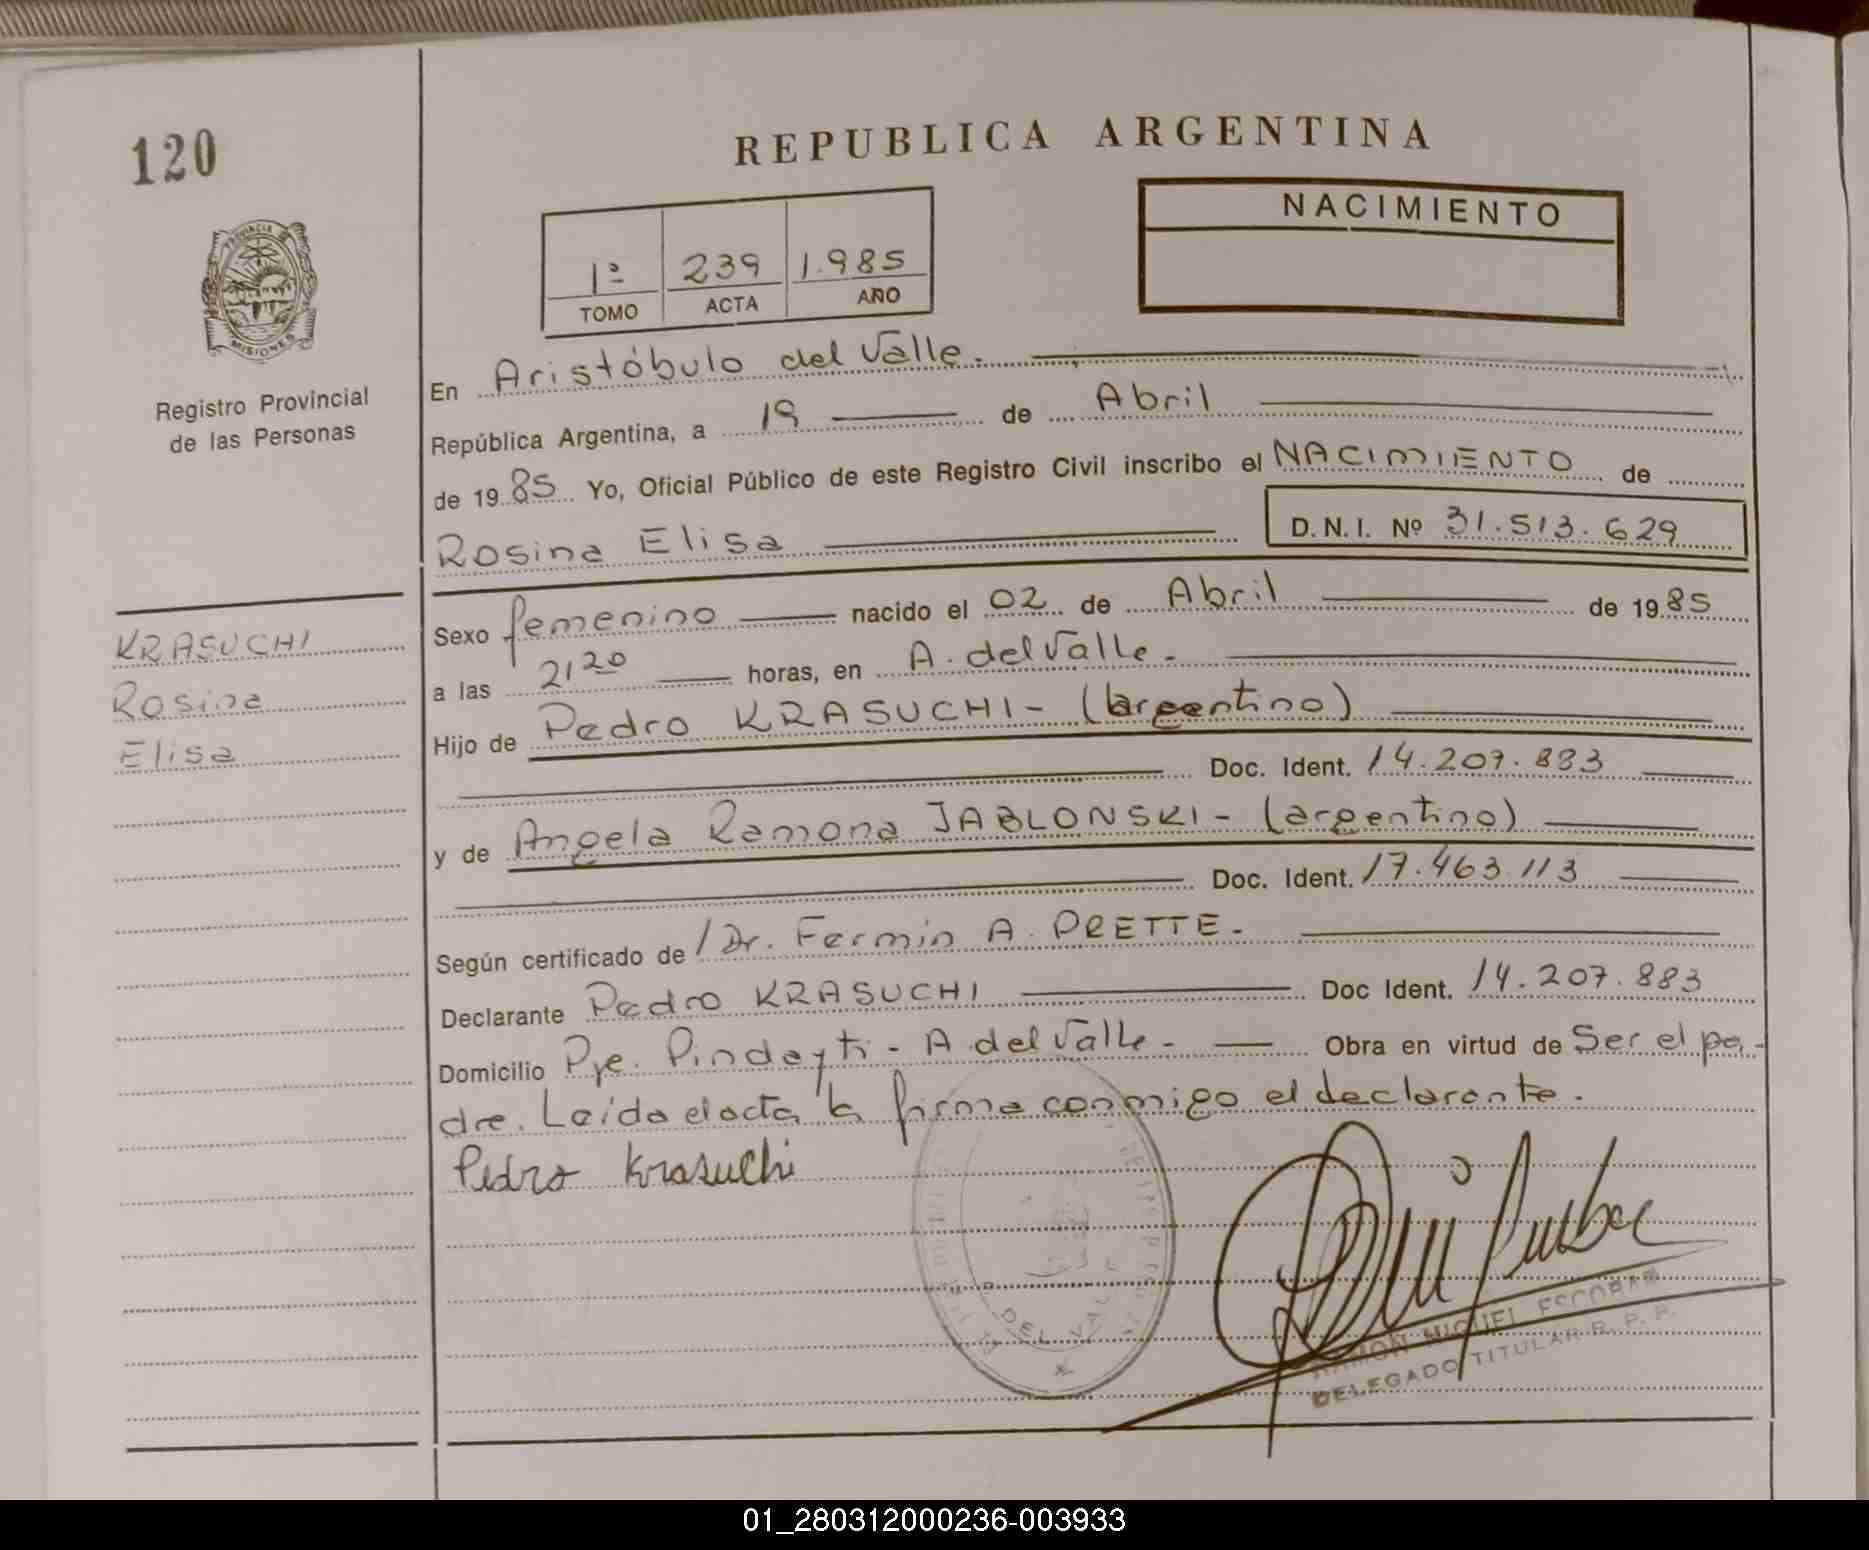 120
REPUBLICA ARGENTINA
PROVINCIA DE
MISIONES
Registro Provincial
de las Personas
1º 239 1.985
TOMO ACTA AÑO
NACIMIENTO
En Aristóbulo del Valle.
República Argentina, a 19 de Abril
de 1985 Yo, Oficial Público de este Registro Civil inscribo el NACIMIENTO de
Rosina Elisa D.N.I. Nº 31.513.629
KRASUCHI
Rosina
Elisa
Sexo femenino nacido el 02 de Abril de 1985
a las 21 20 horas, en A. del Valle -
Hijo de Pedro KRASUCHI - (argentino)
Doc. Ident. 14.207.883
y de Angela Ramona JABLONSKI - (argentino)
Doc. Ident. 17.463.113
Según certificado de Dr. Fermin A. PRETTE -
Declarante Pedro KRASUCHI Doc Ident. 14.207.883
Domicilio Pje. Pindayti - A. del Valle - Obra en virtud de Ser el pa-
dre. Leída el acta la firma conmigo el declarante.
Pedro Krasuchi
DEL VALLE
RAMON MIGUEL ESCOBAR
DELEGADO TITULAR R. P. P.
01_280312000236-003933